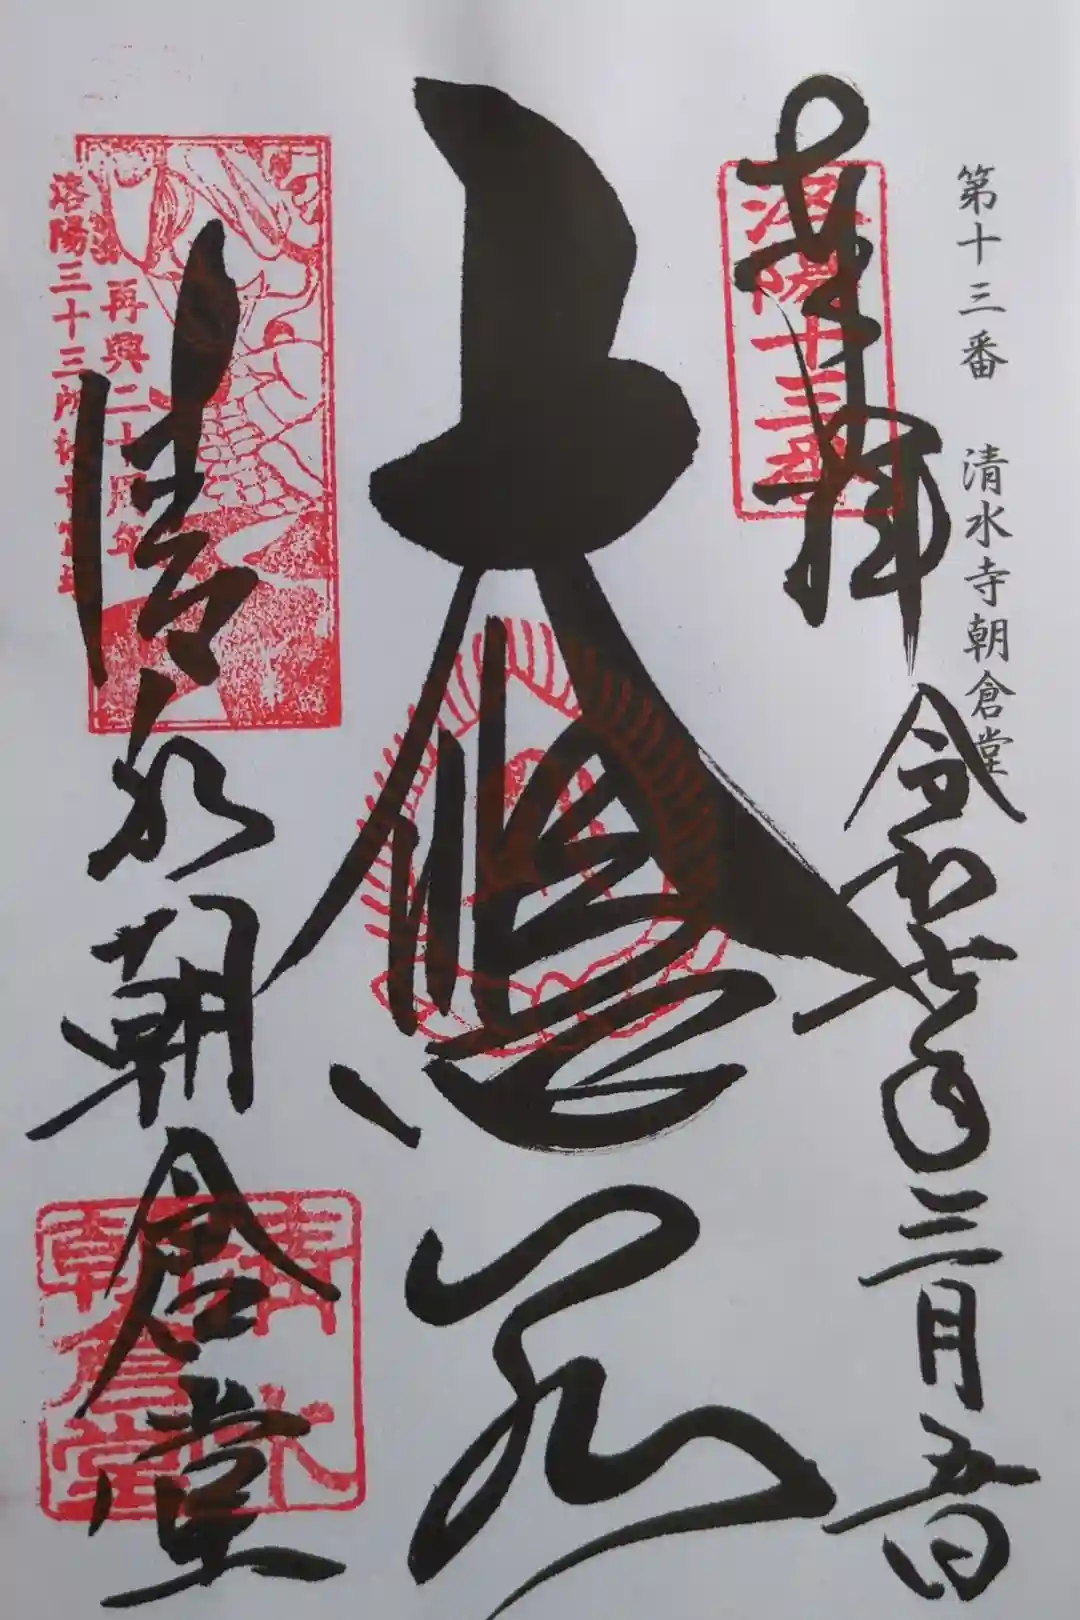 第十三番 清水寺朝倉堂
奉拝
令和七年三月五日
洛陽十三番
大悲閣
再興二十周年
洛陽三十三所
清水朝倉堂
清水
朝倉堂